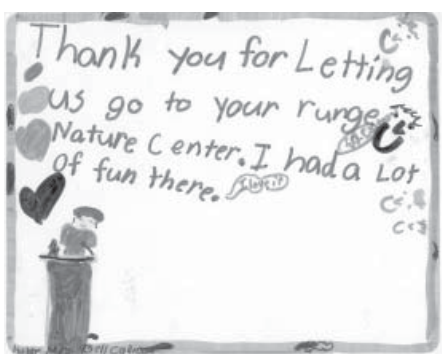 Thank you for Letting
us go to your runge
Nature Center. I had a Lot
Of fun there.